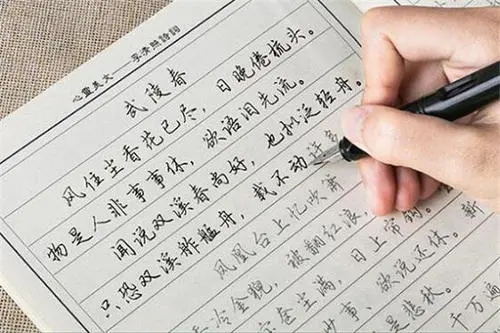 心靈美文·李清照詩詞
武陵春
风住尘香花已尽，日晚倦梳头。
物是人非事事休，欲语泪先流。
闻说双溪春尚好，也拟泛轻舟。
只恐双溪舴艋舟，载不动许多
凤凰台上忆吹箫
冷金猊，被翻红浪
奁尘满，日上帘钩。
事、欲说还休。新
是悲秋。
千万遍